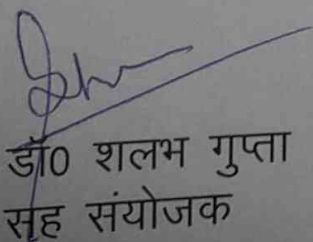 डॉ0 शलभ गुप्ता
सह संयोजक